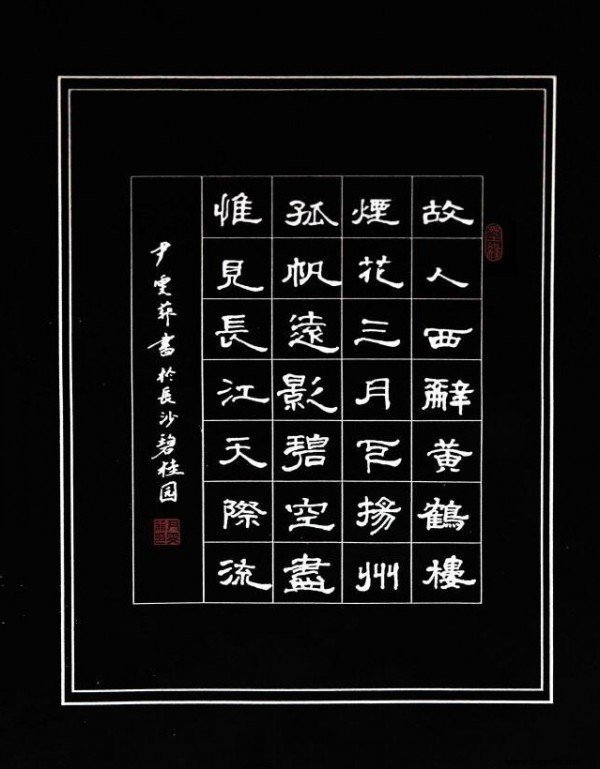 故人西辭黄鶴樓
煙花三月下揚州
孤帆遠影碧空盡
惟見長江天際流
尹雯菲書於長沙碧桂园